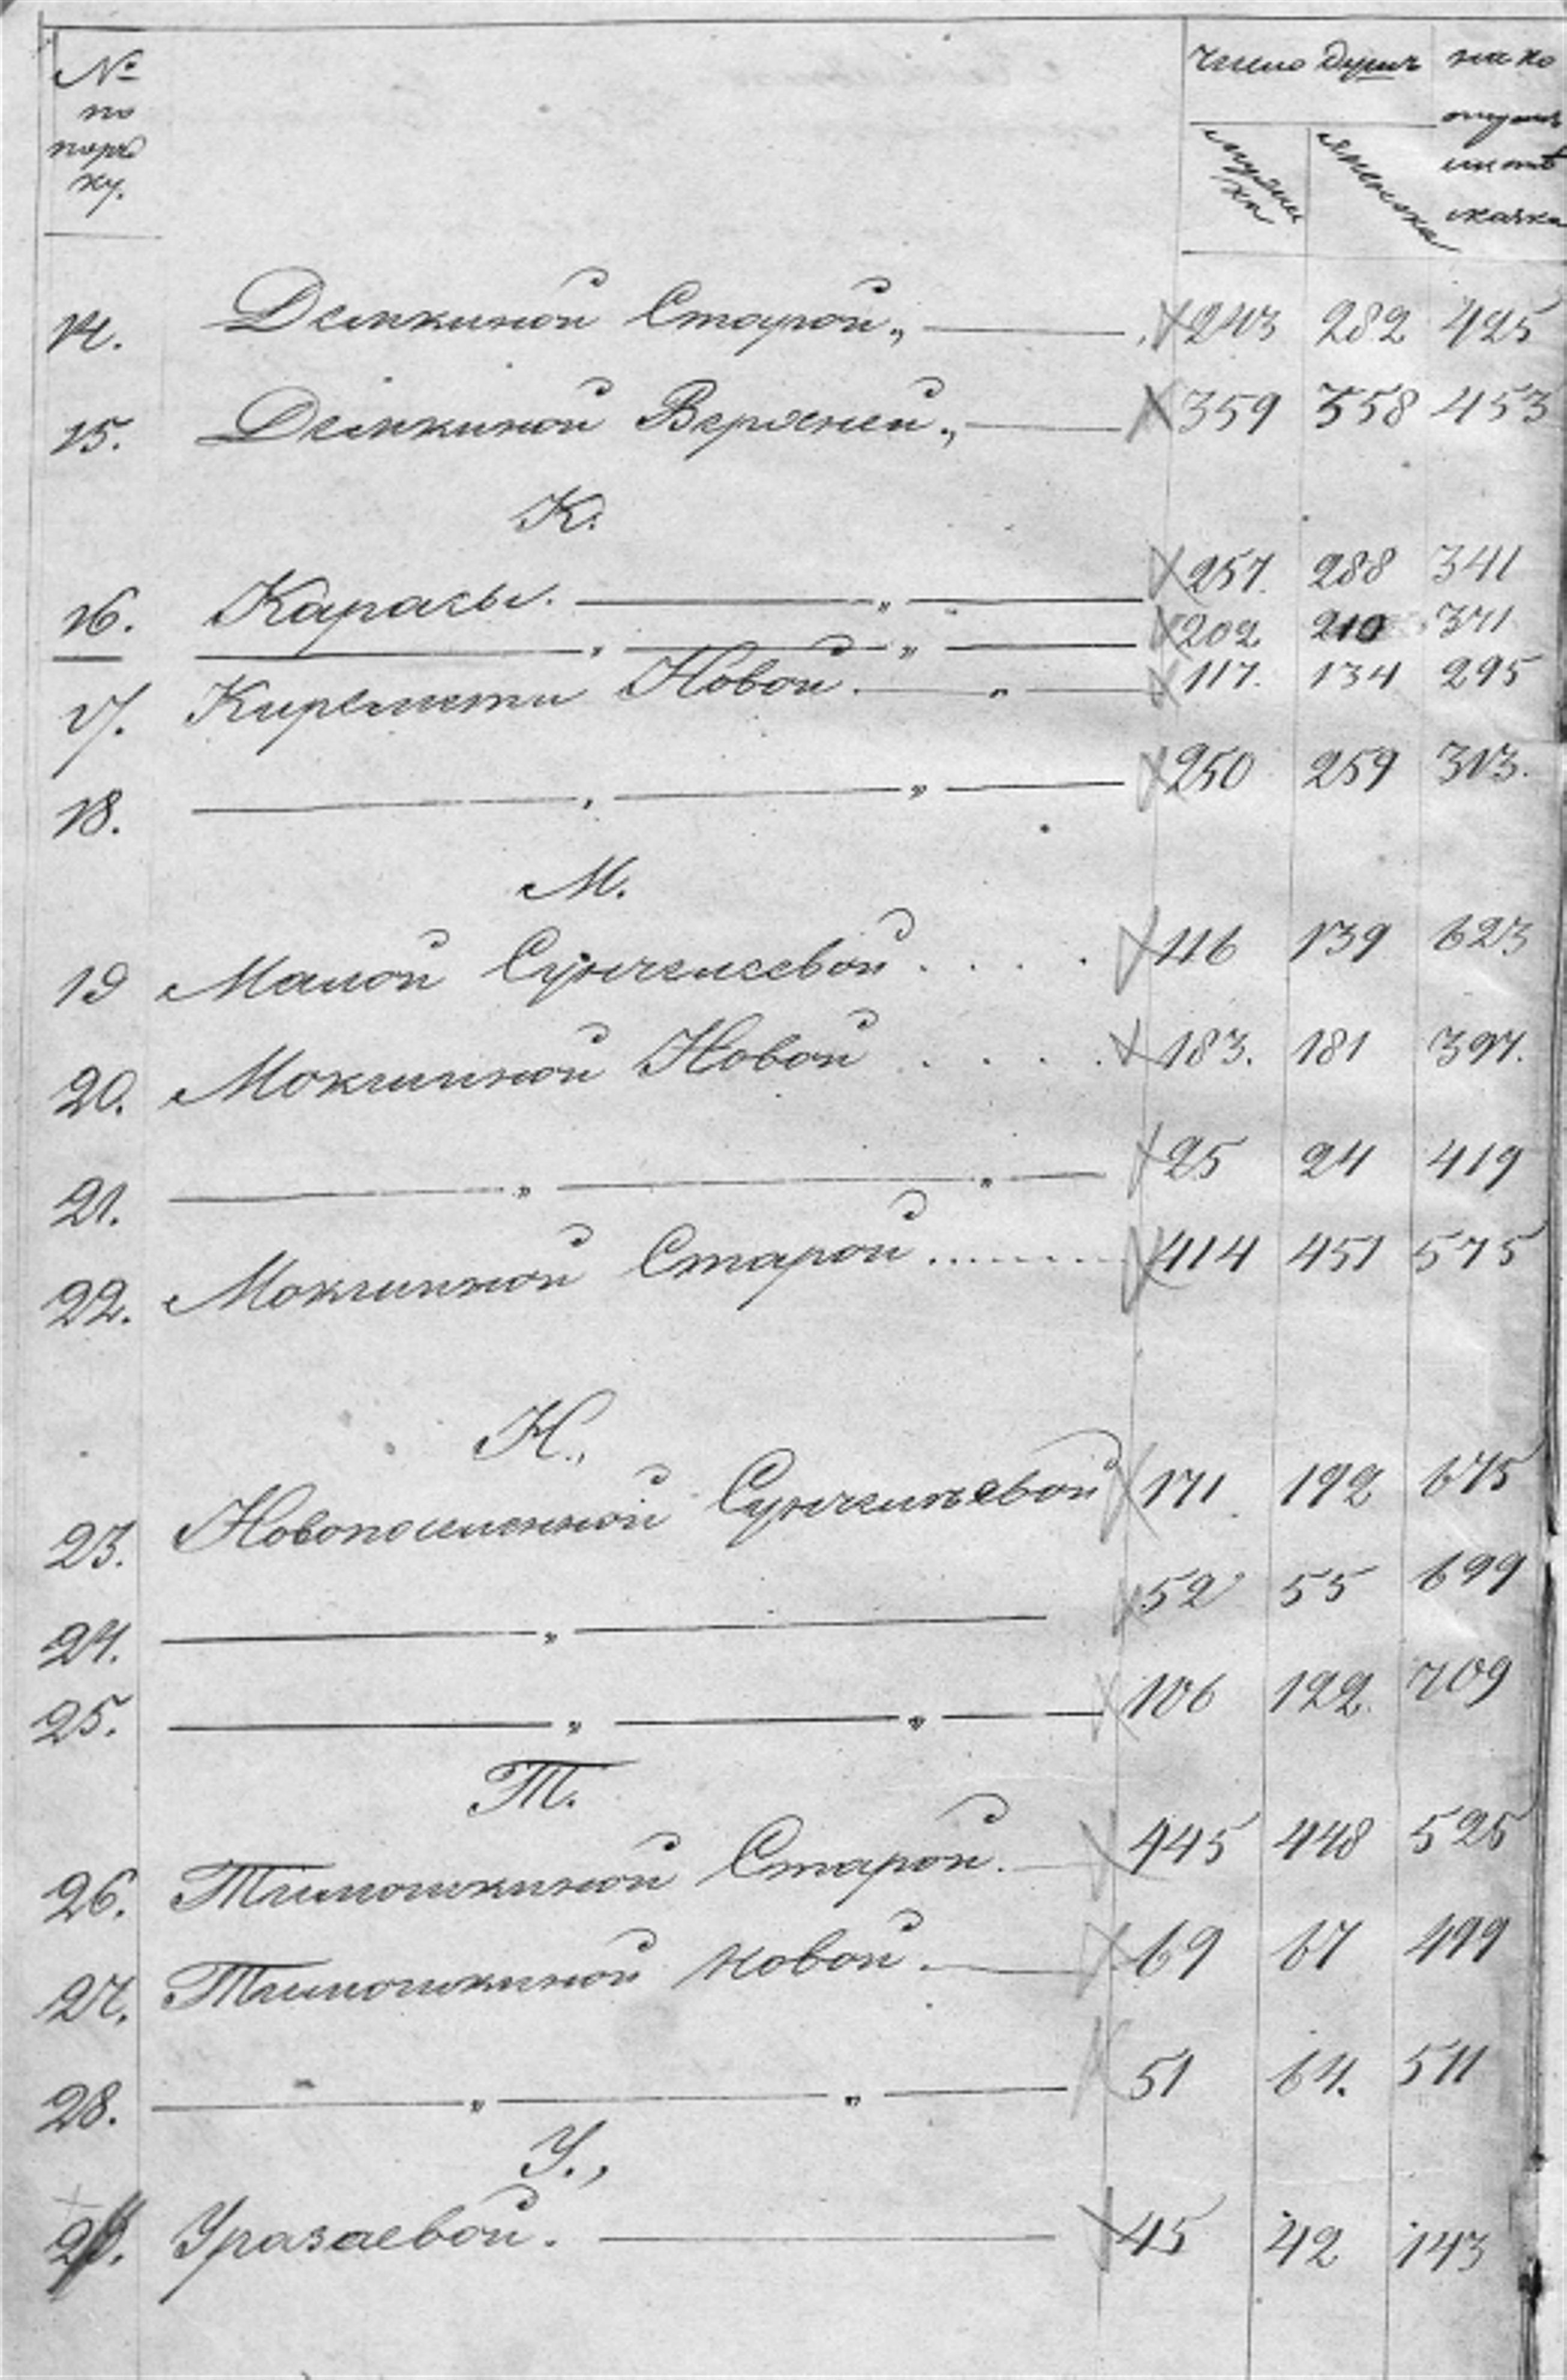 № по поряд ку.
Число душъ
мужеска
женска
на ко
14. Демкиной Старой „ 243 282 425
15. Демкиной Верхней „ 359 358 453
К.
16. Карасы. „ 257. 288 341
„ „ 202 210 371
17. Киремети Новой. „ 117. 134 295
18. „ „ 250 259 313.
М.
19 Малой Сунчелеевой . . . . 116 139 623
20. Мокшиной Новой . . . . 183. 181 397.
21. „ „ 25 24 419
22. Мокшиной Старой ........ 414 451 575
Н.,
23. Новопоселенной Сунчелеевой 171 192 675
24. „ 52 55 699
25. „ „ 106 122. 709
Т.
26. Тимошкиной Старой. 445 448 525
27. Тимошкиной Новой. 69 67 499
28. „ „ 51 64. 511
У.,
29. Уразаевой. 45 42 143